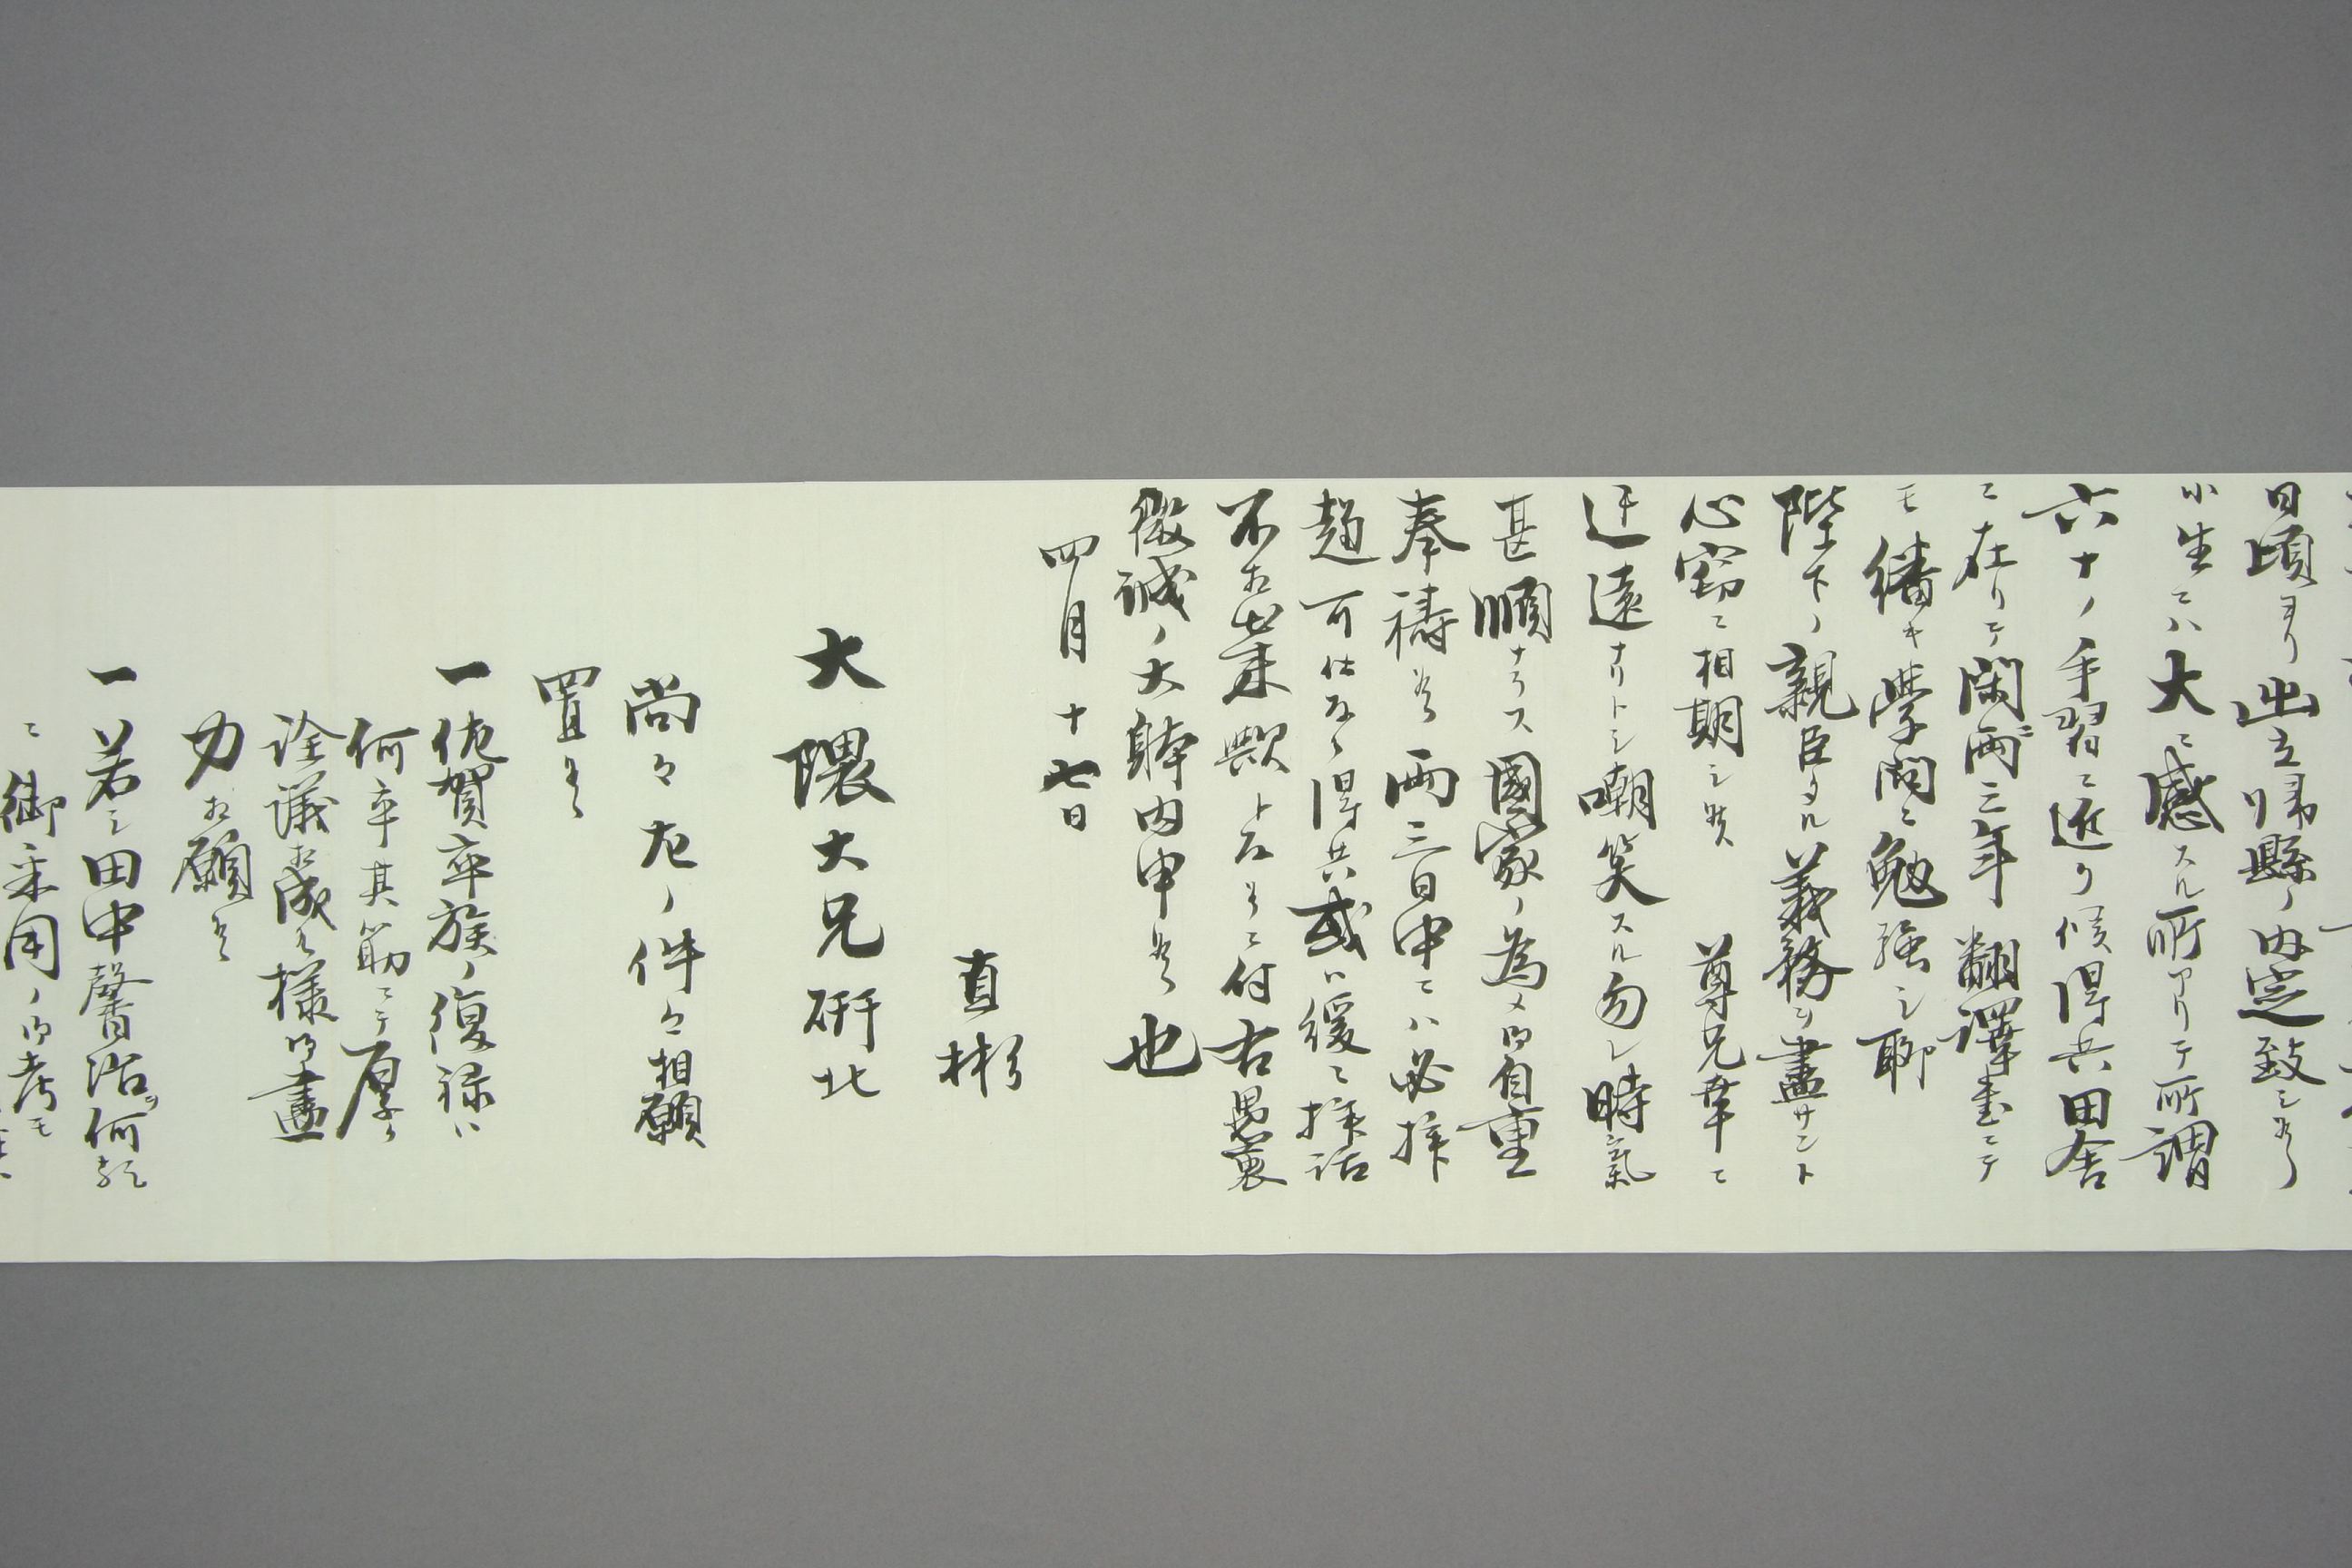 日頃ヨリ出立帰縣ノ内定致シ候
小生ニハ大ニ感スル所アリテ所謂
六十ノ手習ニ近ク候得共田舎
ニ在リテ閑雨三年翻譯書ニテ
モ繙キ學問ニ勉強シ聊
陛下ノ親臣タル義務ヲ盡サント
心窃ニ相期シ候 尊兄幸ニ
迂遠ナリトシ嘲笑スル勿レ時氣
甚順ナラス國家ノ為メ御自重
奉禱候両三日中ニハ必拝
趨可仕存候得共或ハ緩々拝話
不相出来歟ト存候ニ付右愚衷
微誠ノ大躰内申候也
四月十七日
直彬
大隈大兄硏北
尚々左ノ件々相願
置候
一佐賀卒族ノ復禄ハ
何卒其筋ニテ厚ク
詮議相成候様御盡
力相願候
一若シ田中馨治ヲ何
ニ御采用ノ御考モ